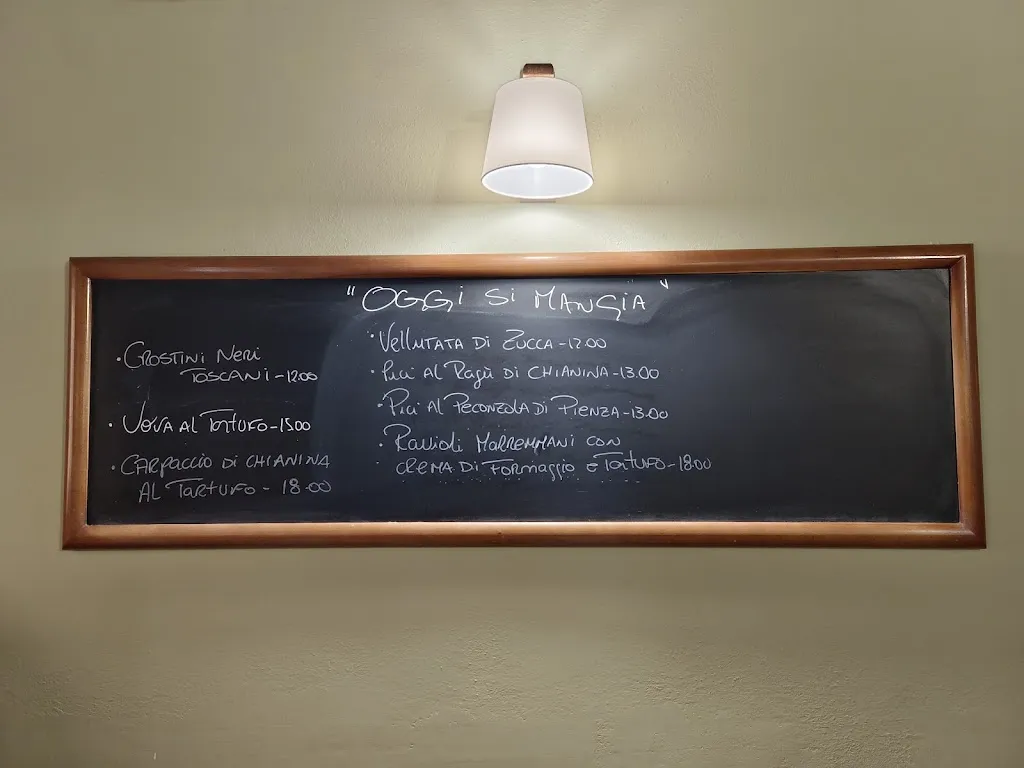 "OGGi Si MANGIA"
• CROSTINI NERI
TOSCANI - 12.00
• UOVA AL TARTUFO - 15.00
• CARPACCIO DI CHIANINA
AL TARTUFO - 18.00
• VELLUTATA DI ZUCCA - 12.00
• Pici AL RAGÙ DI CHIANINA - 13.00
• Pici AL PECONZOLA DI PIENZA - 13.00
• Ravioli MARREMMANI CON
CREMA DI FORMAggio e TARTUFO - 18.00